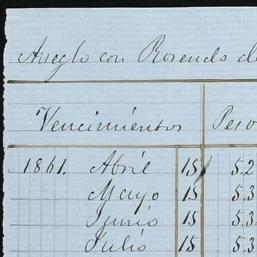 Arreglo con Rosendo de
Vencimientos Peso
1861. Abril 15 5.2
Mayo 15 5.3
Junio 15 5.3
Julio 15 5.3